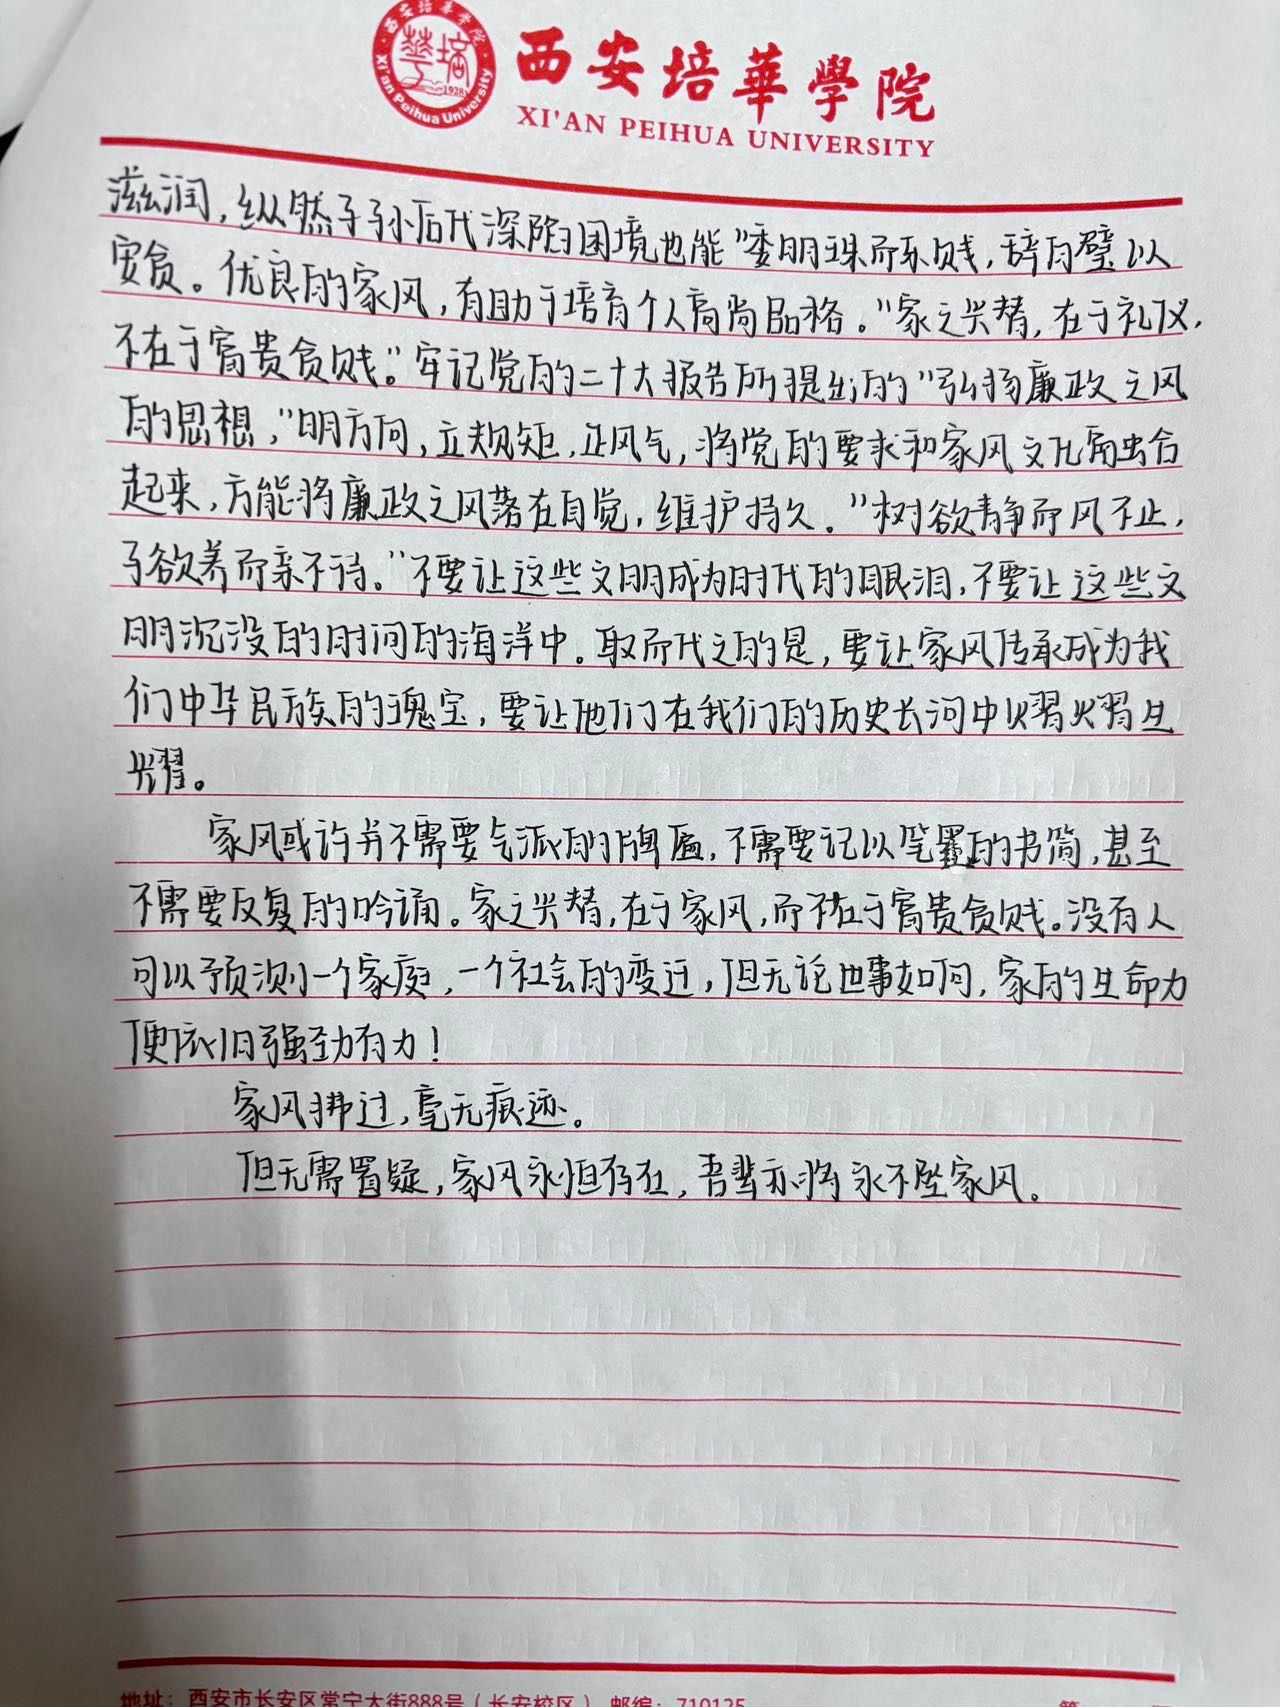 西安培華學院
XI'AN PEIHUA UNIVERSITY
西安培华学院
Xi'an Peihua University
1928
滋润，纵然子子孙后代深陷困境也能"委明珠而乐贱，辞白璧以
安贫。优良的家风，有助于培育个人高尚品格。"家之兴替，在于礼仪，
不在于富贵贫贱。"牢记党的二十大报告所提出的"弘扬廉政之风
的思想，"明方向，立规矩，正风气，将党的要求和家风文化融合
起来，方能将廉政之风落在自觉，维护持久。"树欲静而风不止，
子欲养而亲不待。"不要让这些文明成为时代的眼泪，不要让这些文
明沉没的时间的海洋中。取而代之的是，要让家风传承成为我
们中华民族的瑰宝，要让他们在我们的历史长河中熠熠生
耀。
家风或许并不需要气派的牌匾，不需要记以笔墨的书简，甚至
不需要反复的吟诵。家之兴替，在于家风，而不在于富贵贫贱。没有人
可以预测一个家庭，一个社会的变迁，但无论世事如何，家的生命力
便依旧强劲有力！
家风拂过，毫无痕迹。
但无需置疑，家风永恒存在，吾辈亦将永不坠家风。
地址：西安市长安区常宁大街888号（长安校区） 邮编：710125